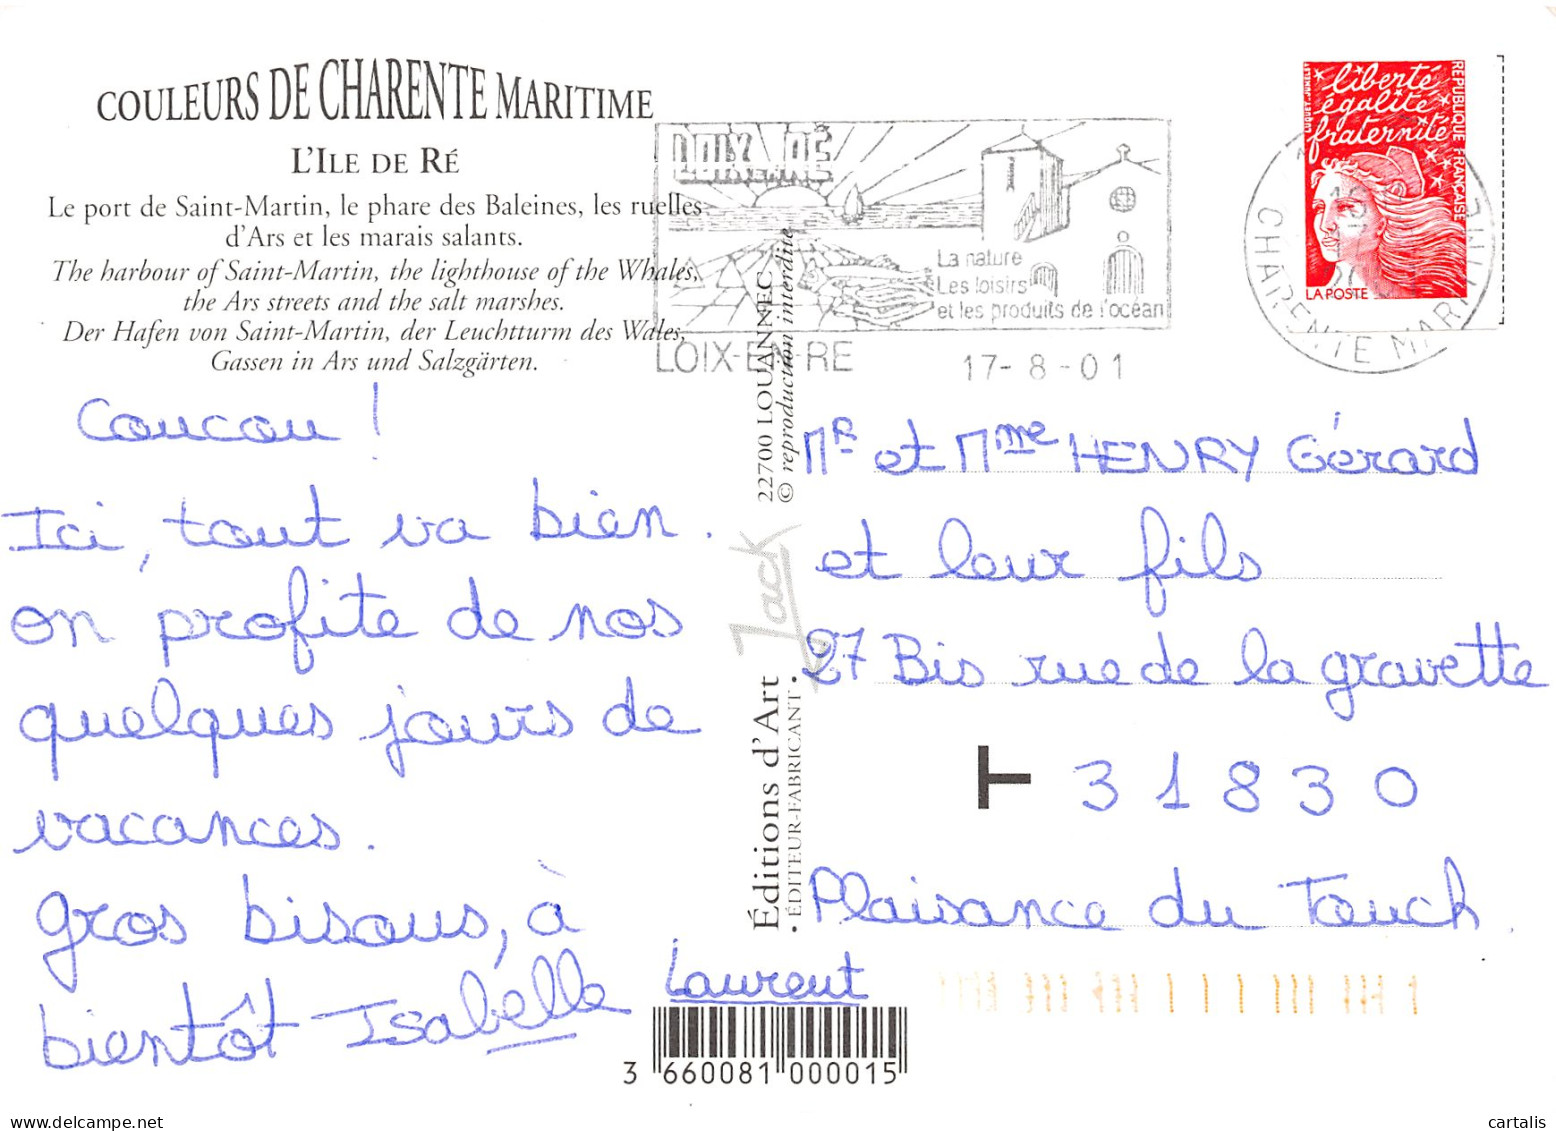 COULEURS DE CHARENTE MARITIME
L'ILE DE RÉ
Le port de Saint-Martin, le phare des Baleines, les ruelles
d'Ars et les marais salants.
The harbour of Saint-Martin, the lighthouse of the Whales,
the Ars streets and the salt marshes.
Der Hafen von Saint-Martin, der Leuchtturm des Wales,
Gassen in Ars und Salzgärten.
LOIX EN RÉ
La nature
Les loisirs
et les produits de l'océan
LOIX-EN-RE
17-8-01
liberté
égalité
fraternité
RÉPUBLIQUE FRANÇAISE
LUQUET-JUMELET
LA POSTE
CHARENTE MARITIME
Coucou !
Ici, tout va bien.
on profite de nos
quelques jours de
vacances.
Gros bisous, à
bientôt Isabelle
Laurent
Éditions d'Art Jack
• ÉDITEUR-FABRICANT •
22700 LOUANNEC
© reproduction interdite
Mr et Mme HENRY Gérard
et leur fils
27 Bis rue de la gravette
T 31830
Plaisance du Touch
3 660081 000015
cartalis